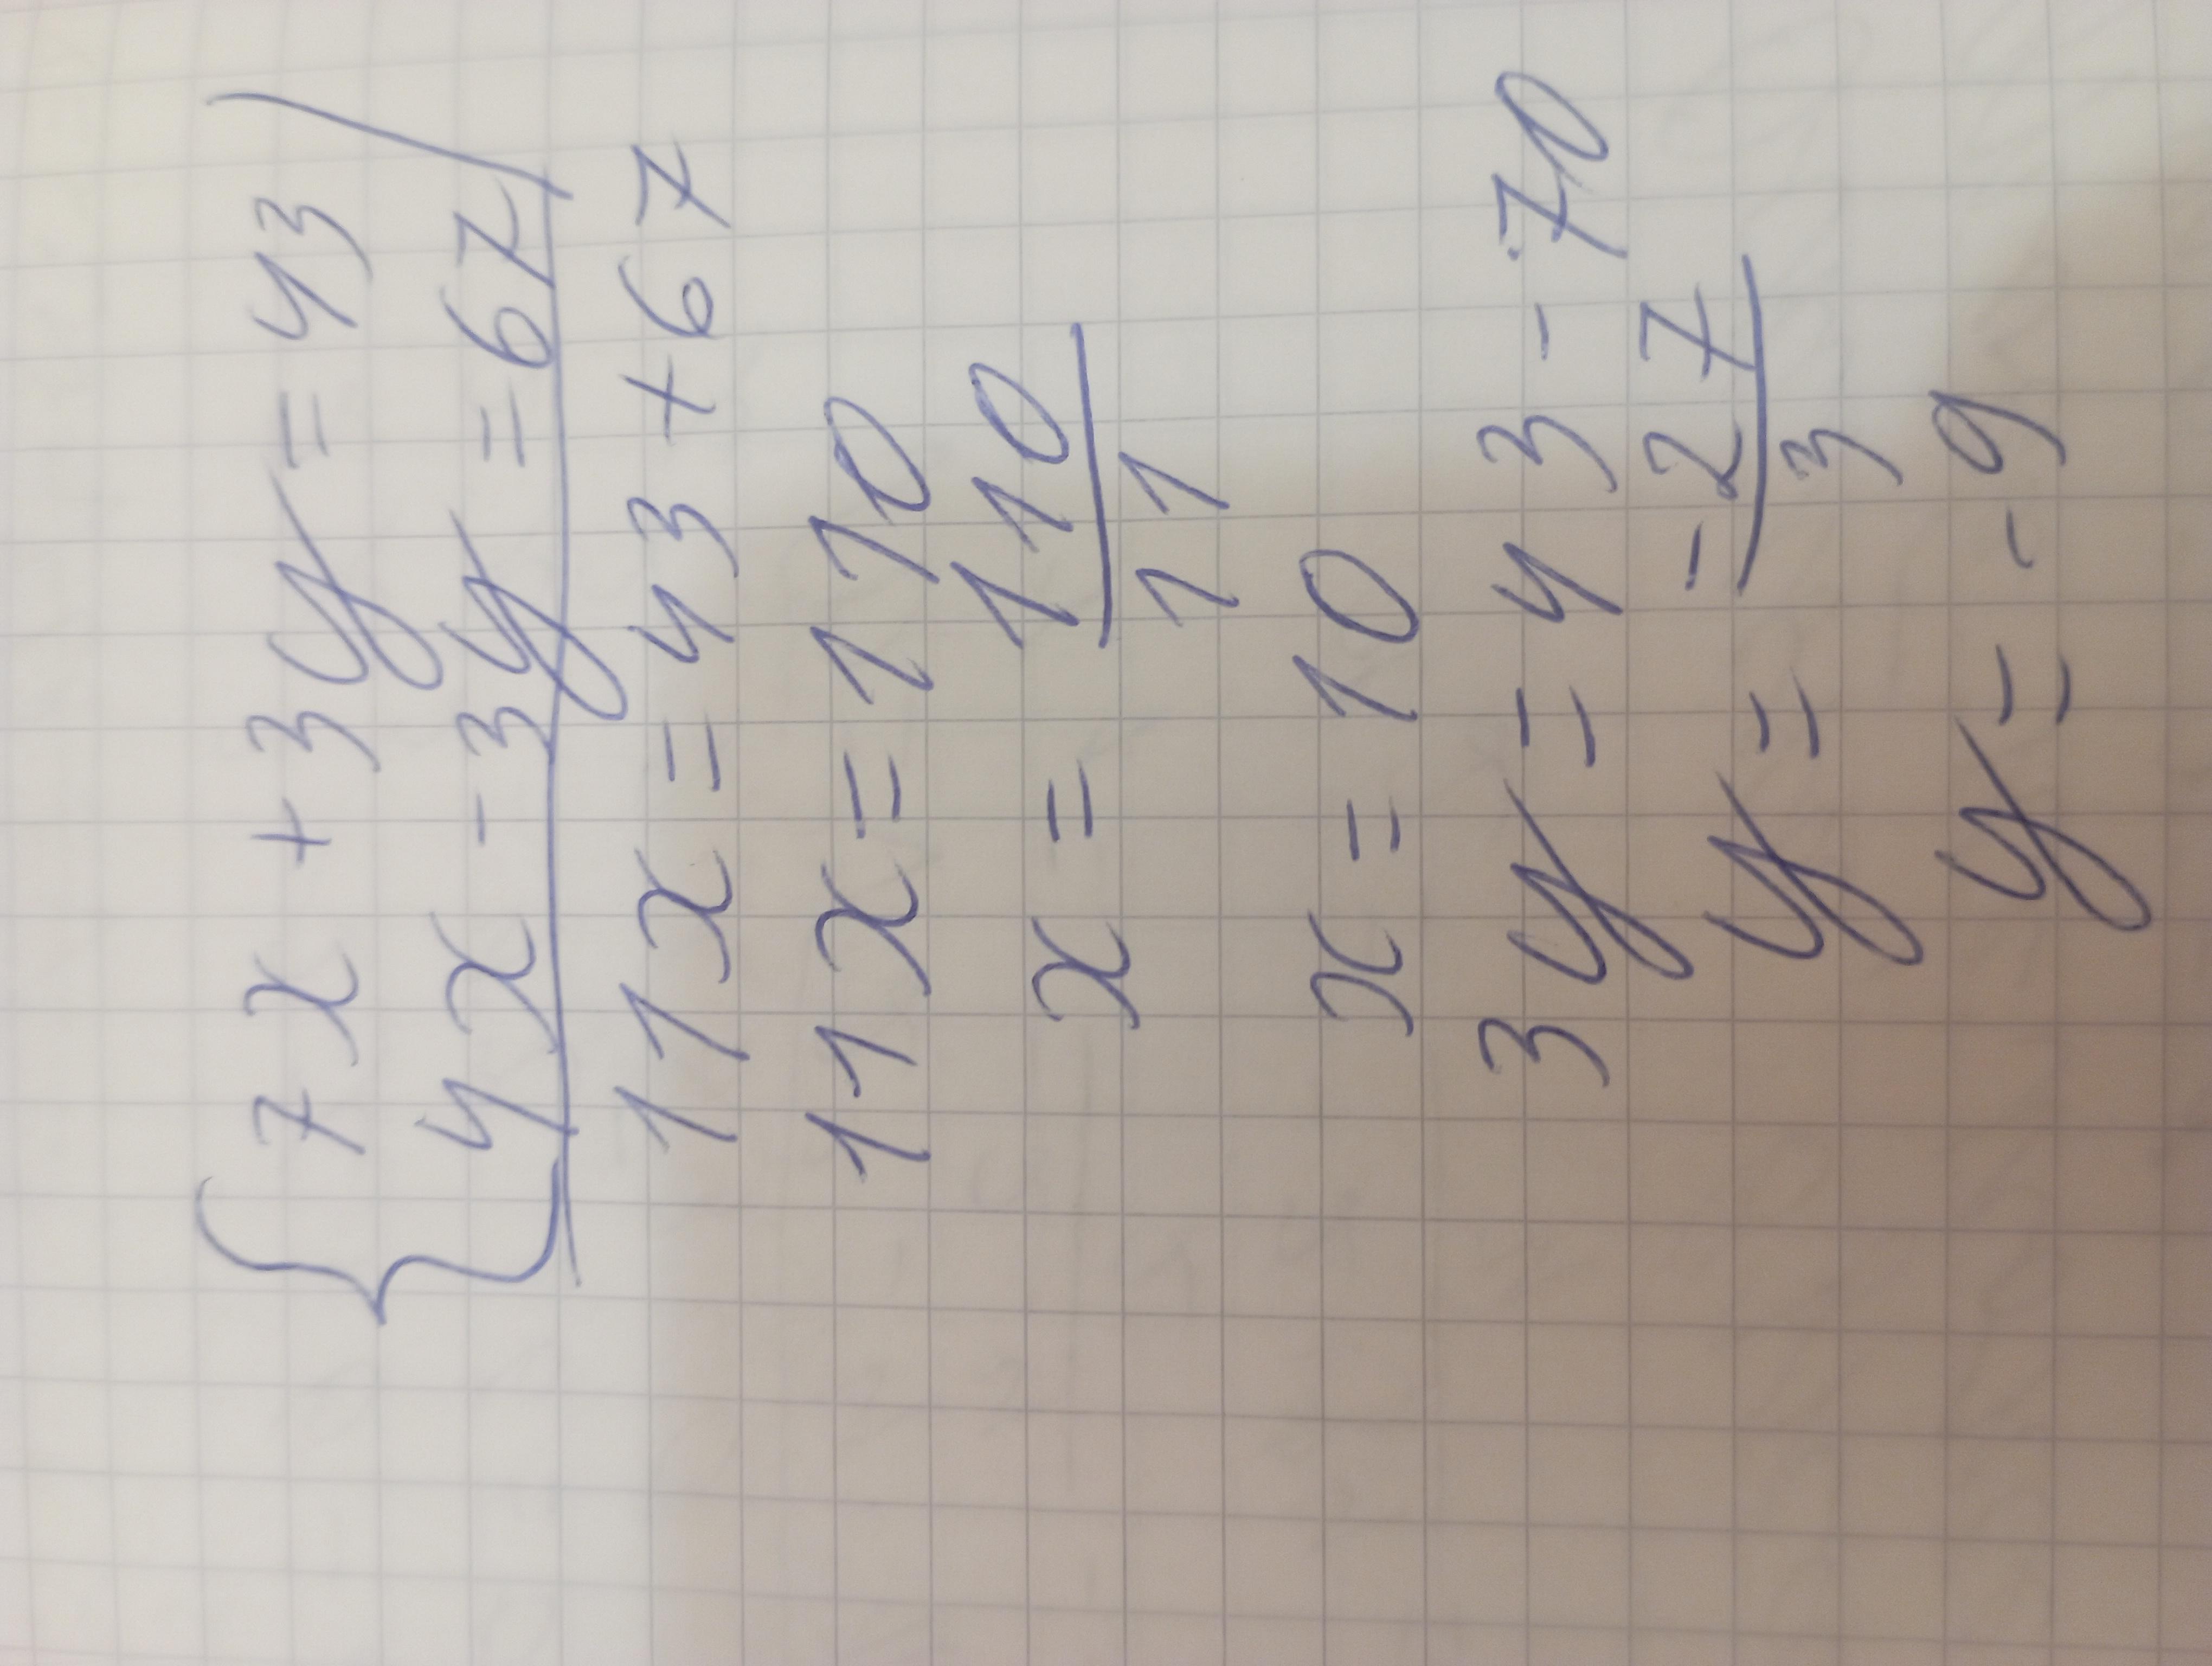 7x + 3y = 43
4x - 3y = 67
11x = 43 + 67
11x = 110
x = 110/11
x = 10
3y = 43 - 70
y = -27/3
y = -9